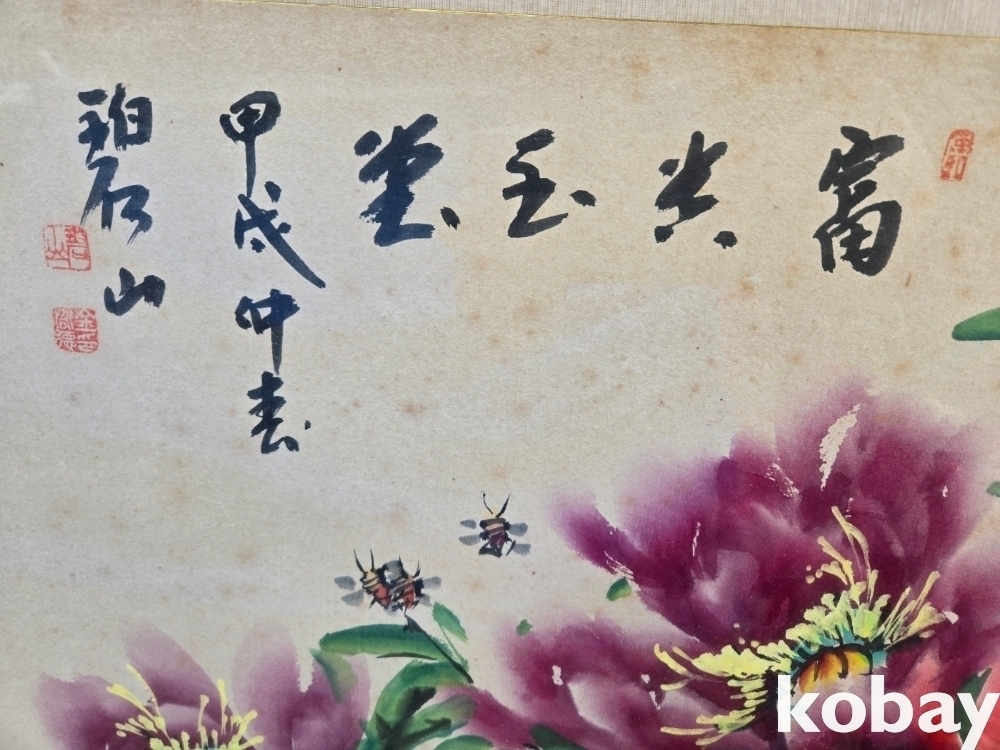 富貴玉堂
甲戌仲春
碧山
碧山
kobay